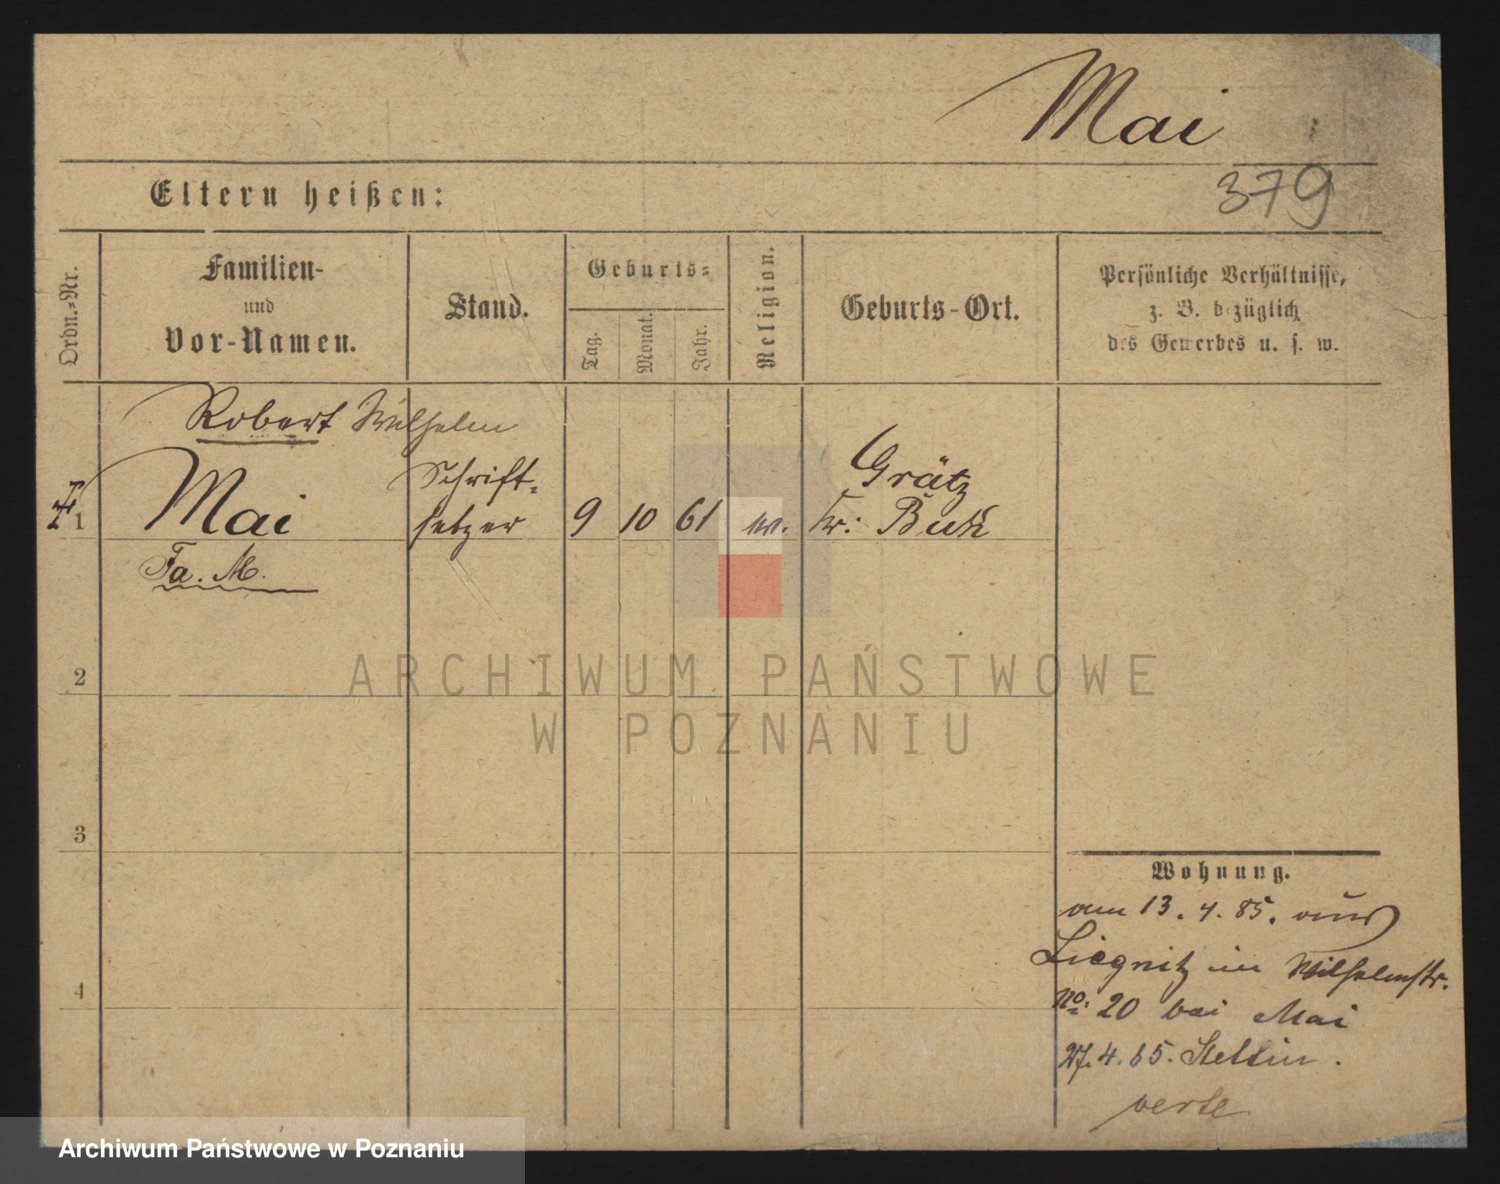 Mai
379
Eltern heißen:
Ordn.-Nr.
Familien-
und
Vor-Namen.
Stand.
Geburts-
Tag.
Monat.
Jahr.
Religion.
Geburts-Ort.
Persönliche Verhältnisse,
z. B. bezüglich
des Gewerbes u. s. w.
Robert Wilhelm
1 Mai Schrift-
setzer 9 10 61 Grätz
Kr: Buk
Fa. M.
2
3
4
Wohnung.
am 13. 4. 85. aus
Liegnitz in Wilhelmstr.
No. 20 bei Mai
27. 4. 85. Stettin.
verte
ARCHIWUM PAŃSTWOWE
W POZNANIU
Archiwum Państwowe w Poznaniu